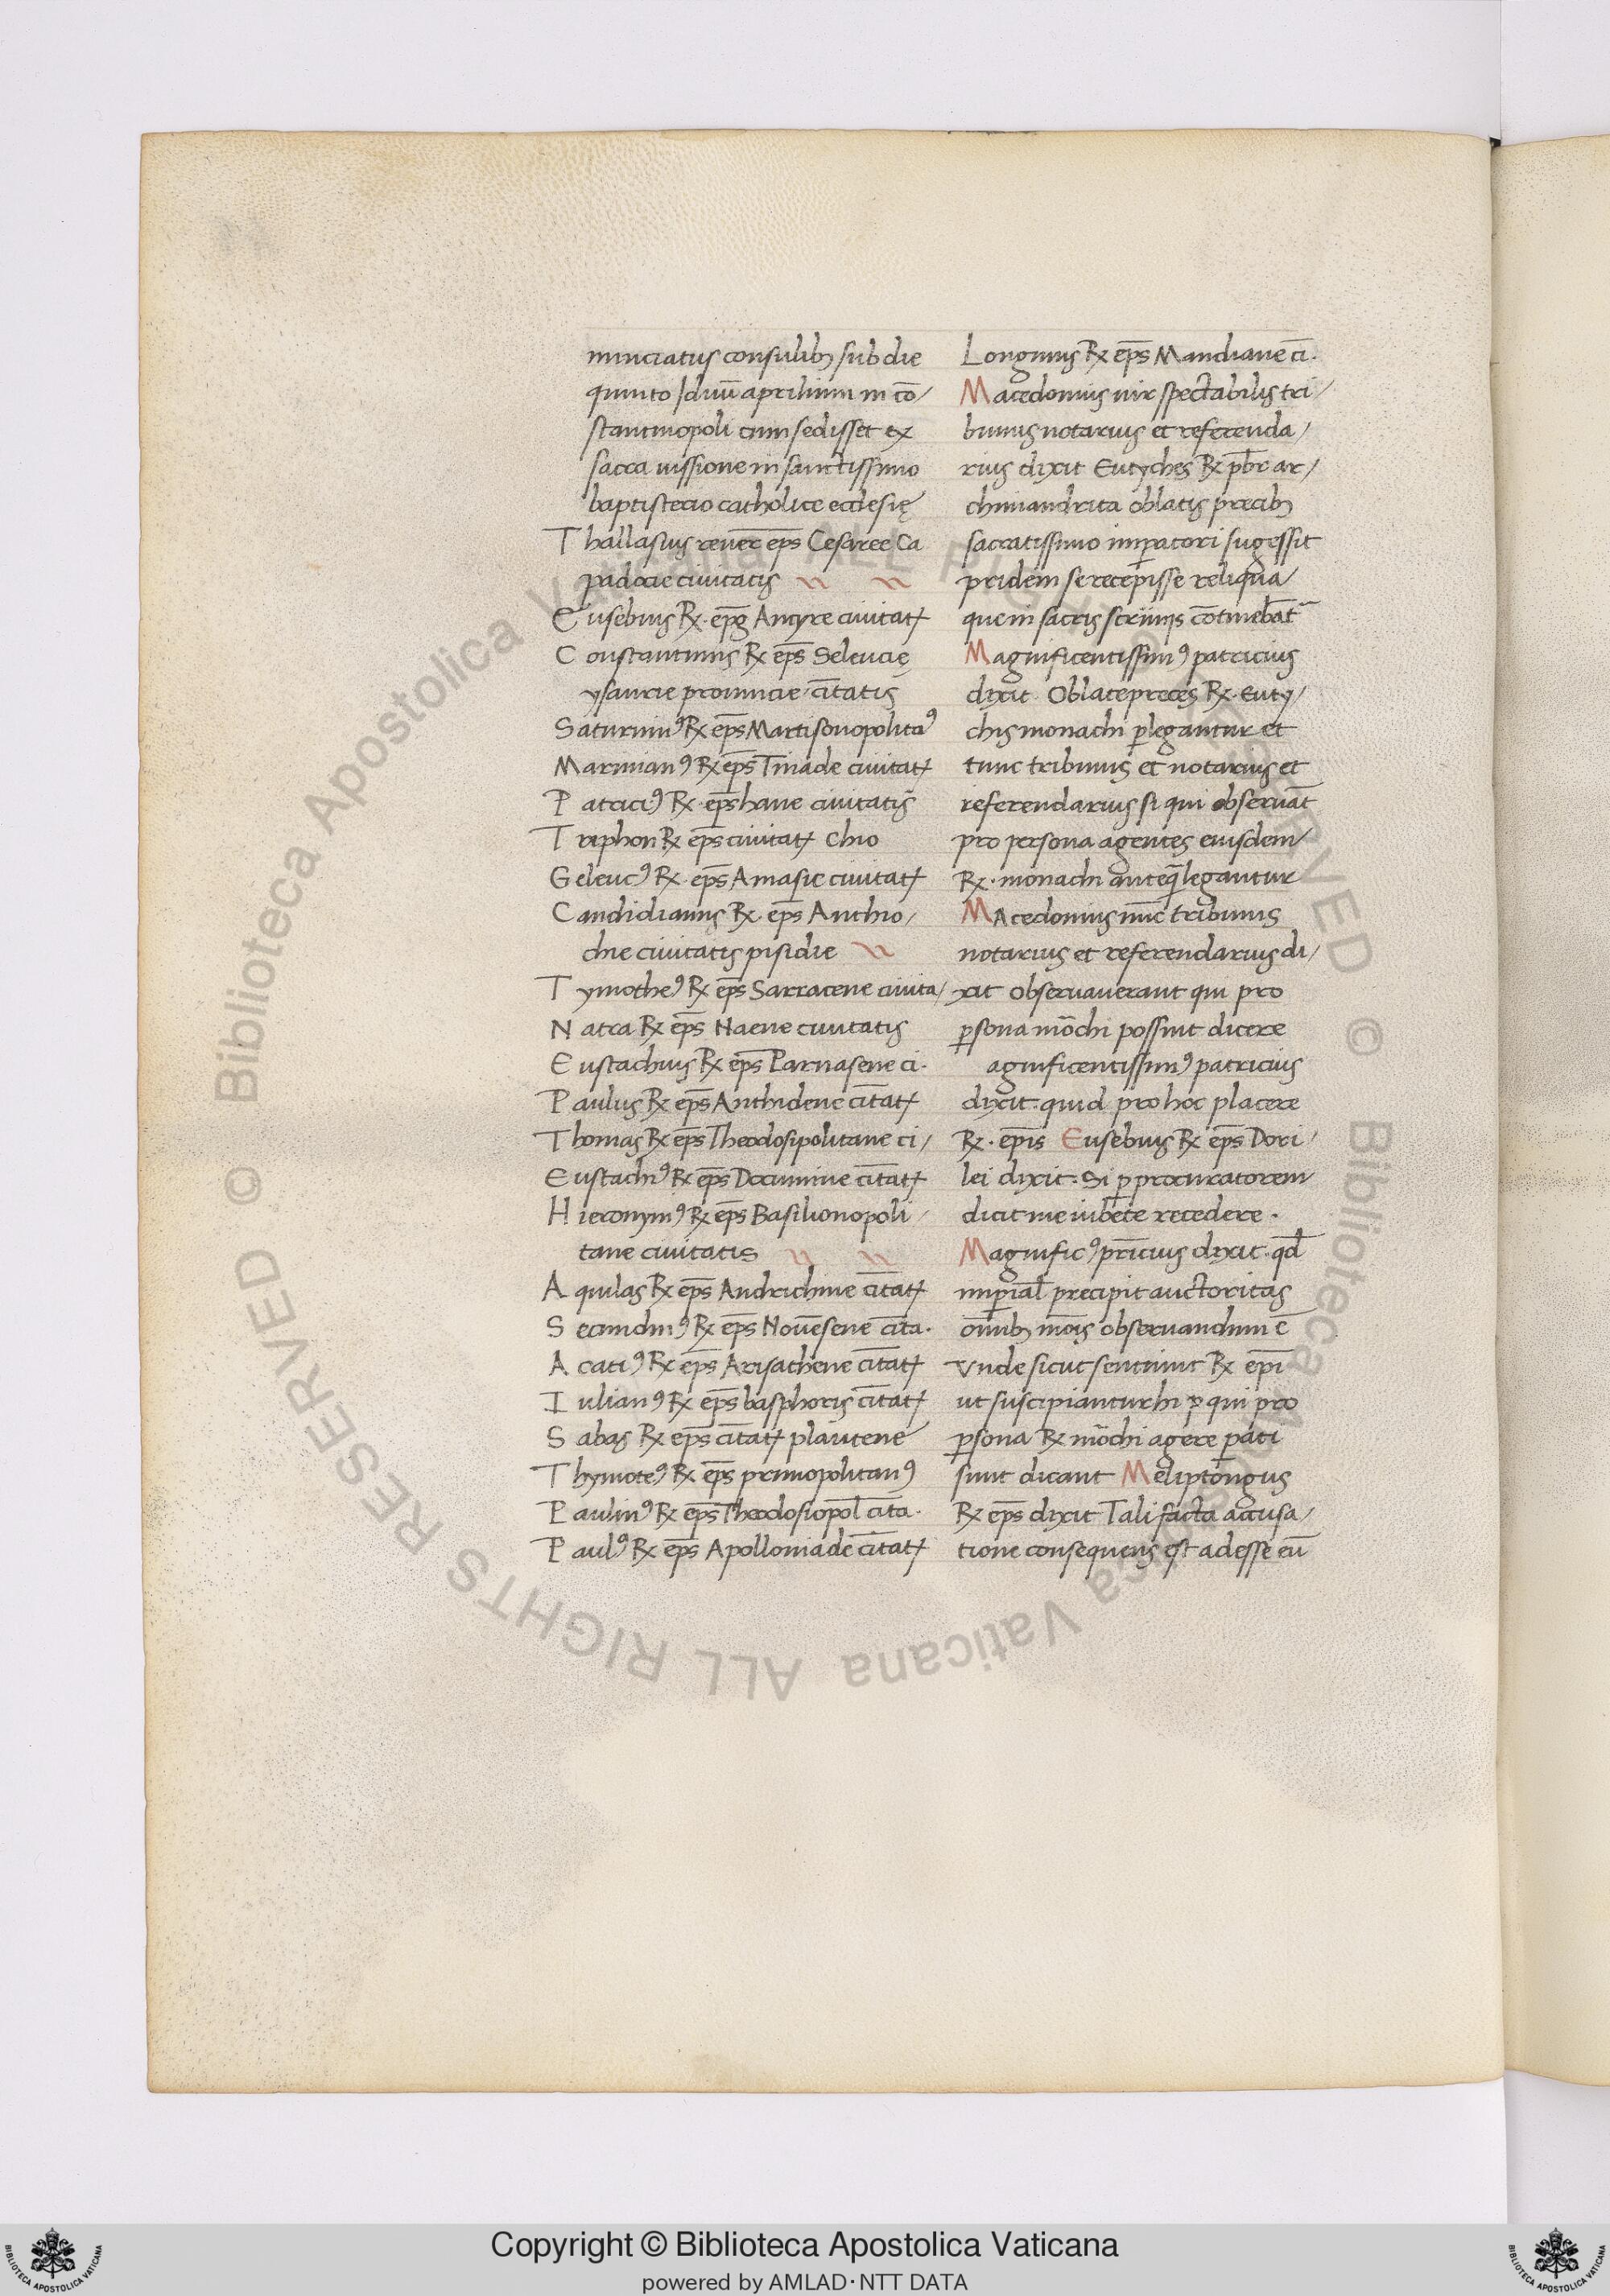 nunciatus consulibꝫ sub die
quinto Iduū aprilium in cō/
stantinopoli cum sedisset ex
sacra iussione in sanctissimo
baptisterio catholice ecclesię
Thallasius reuer̄ ep̄s Cesaree Ca
padocie ciuitatis
Eusebius ℞. ep̄s Ancyre ciuitatꝭ
Constantinus ℞ ep̄s Seleucię
ysaurie prouincie cītatis
Saturninꝰ ℞ ep̄s Martisonopolitaꝰ
Marinianꝰ ℞ ep̄s Tinade ciuitatꝭ
Patriciꝰ ℞. ep̄s hane ciuitatis
Triphon ℞ ep̄s ciuitatꝭ Chio
Geleucꝰ ℞. ep̄s Amasie ciuitatꝭ
Candidianus ℞. ep̄s Anthio/
chie ciuitatis pisidie
Tymotheꝰ ℞ ep̄s Sarracene ciuita/
Natra ℞ ep̄s Naene ciuitatis
Eustachius ℞ ep̄s Parnasene ci.
Paulus ℞ ep̄s Anthidene cītatꝭ
Thomas ℞ ep̄s Theodosipolitane ci/
Eustachiꝰ ℞ ep̄s Docimine cītatꝭ
Hieronymꝰ ℞ ep̄s Basilionopoli/
tane ciuitatis
Aquilas ℞ ep̄s Andrichine cītatꝭ
Secundinꝰ ℞ ep̄s Nouēsene cīta.
Acatiꝰ ℞ ep̄s Arisathene cītatꝭ
Iulianꝰ ℞ ep̄s basphoris cītatꝭ
Sabas ℞ ep̄s cītatꝭ plautene
Thymoteꝰ ℞ ep̄s primopolitanꝰ
Paulinꝰ ℞ ep̄s Theodosiopol̄ cīta.
Paulꝰ ℞ ep̄s Apolloniade cītatꝭ
Longinus ℞ ep̄s Mandiane cī.
Macedonius uir spectabilis tri/
bunus notarius et referenda/
rius dixit Eutyches ℞ pb̄r ar/
chimandrita oblatis precibꝫ
sacratissimo imꝑatori sugessit
pridem se recepisse reliqua/
que in sacris scriniis cōtinebāt᷑
Magnificentissimꝰ patricius
dixit. Oblate preces ℞. Euty/
chis monachi ꝑlegantur et
tunc tribunus et notarius et
referendarius si qui obseruāt
pro persona agentes eiusdem/
℞. monachi anteq̄ legantur
MAcedonius nūc tribunus
notarius et referendarius di/
xit Obseruauerant qui pro
ꝑsona mōchi possint dicere
agnificentissimꝰ patricius
dixit. quid pro hoc placere
℞. ep̄is Eusebius ℞ ep̄s Dori/
lei dixit. Si ꝑ procuratorem
dicit me iubēte recedere.
Magnificꝰ pr̄icius dixit. qd̄
imꝑial̄ precipit auctoritas
om̄ibꝫ mōis obseruandum ē
Vnde sicut sentiunt ℞ ep̄i
ut suscipiantur hi ꝑ qui pro
ꝑsona ℞ mōchi agere ꝑati
sunt dicant Meliptongus
℞ ep̄s dixit Tali facta accusa/
tione consequens est adesse eū
© Biblioteca Apostolica Vaticana ALL RIGHTS RESERVED © Biblioteca Apostolica Vaticana ALL RIGHTS RESERVED
Copyright © Biblioteca Apostolica Vaticana
powered by AMLAD·NTT DATA
BIBLIOTECA APOSTOLICA VATICANA
BIBLIOTECA APOSTOLICA VATICANA